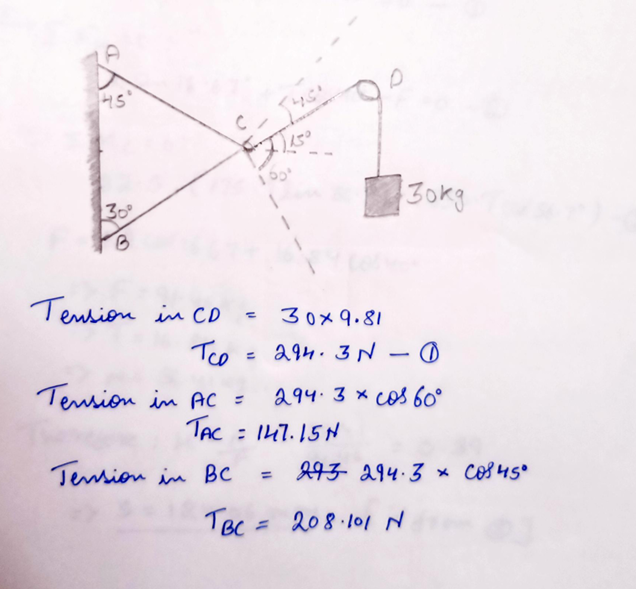 A
D
45°
45°
C
15°
60°
30kg
30°
B
Tension in CD = 30×9.81
T_CD = 294.3N — ①
Tension in AC = 294.3 × cos 60°
T_AC = 147.15N
Tension in BC = 293 294.3 × cos 45°
T_BC = 208.101 N